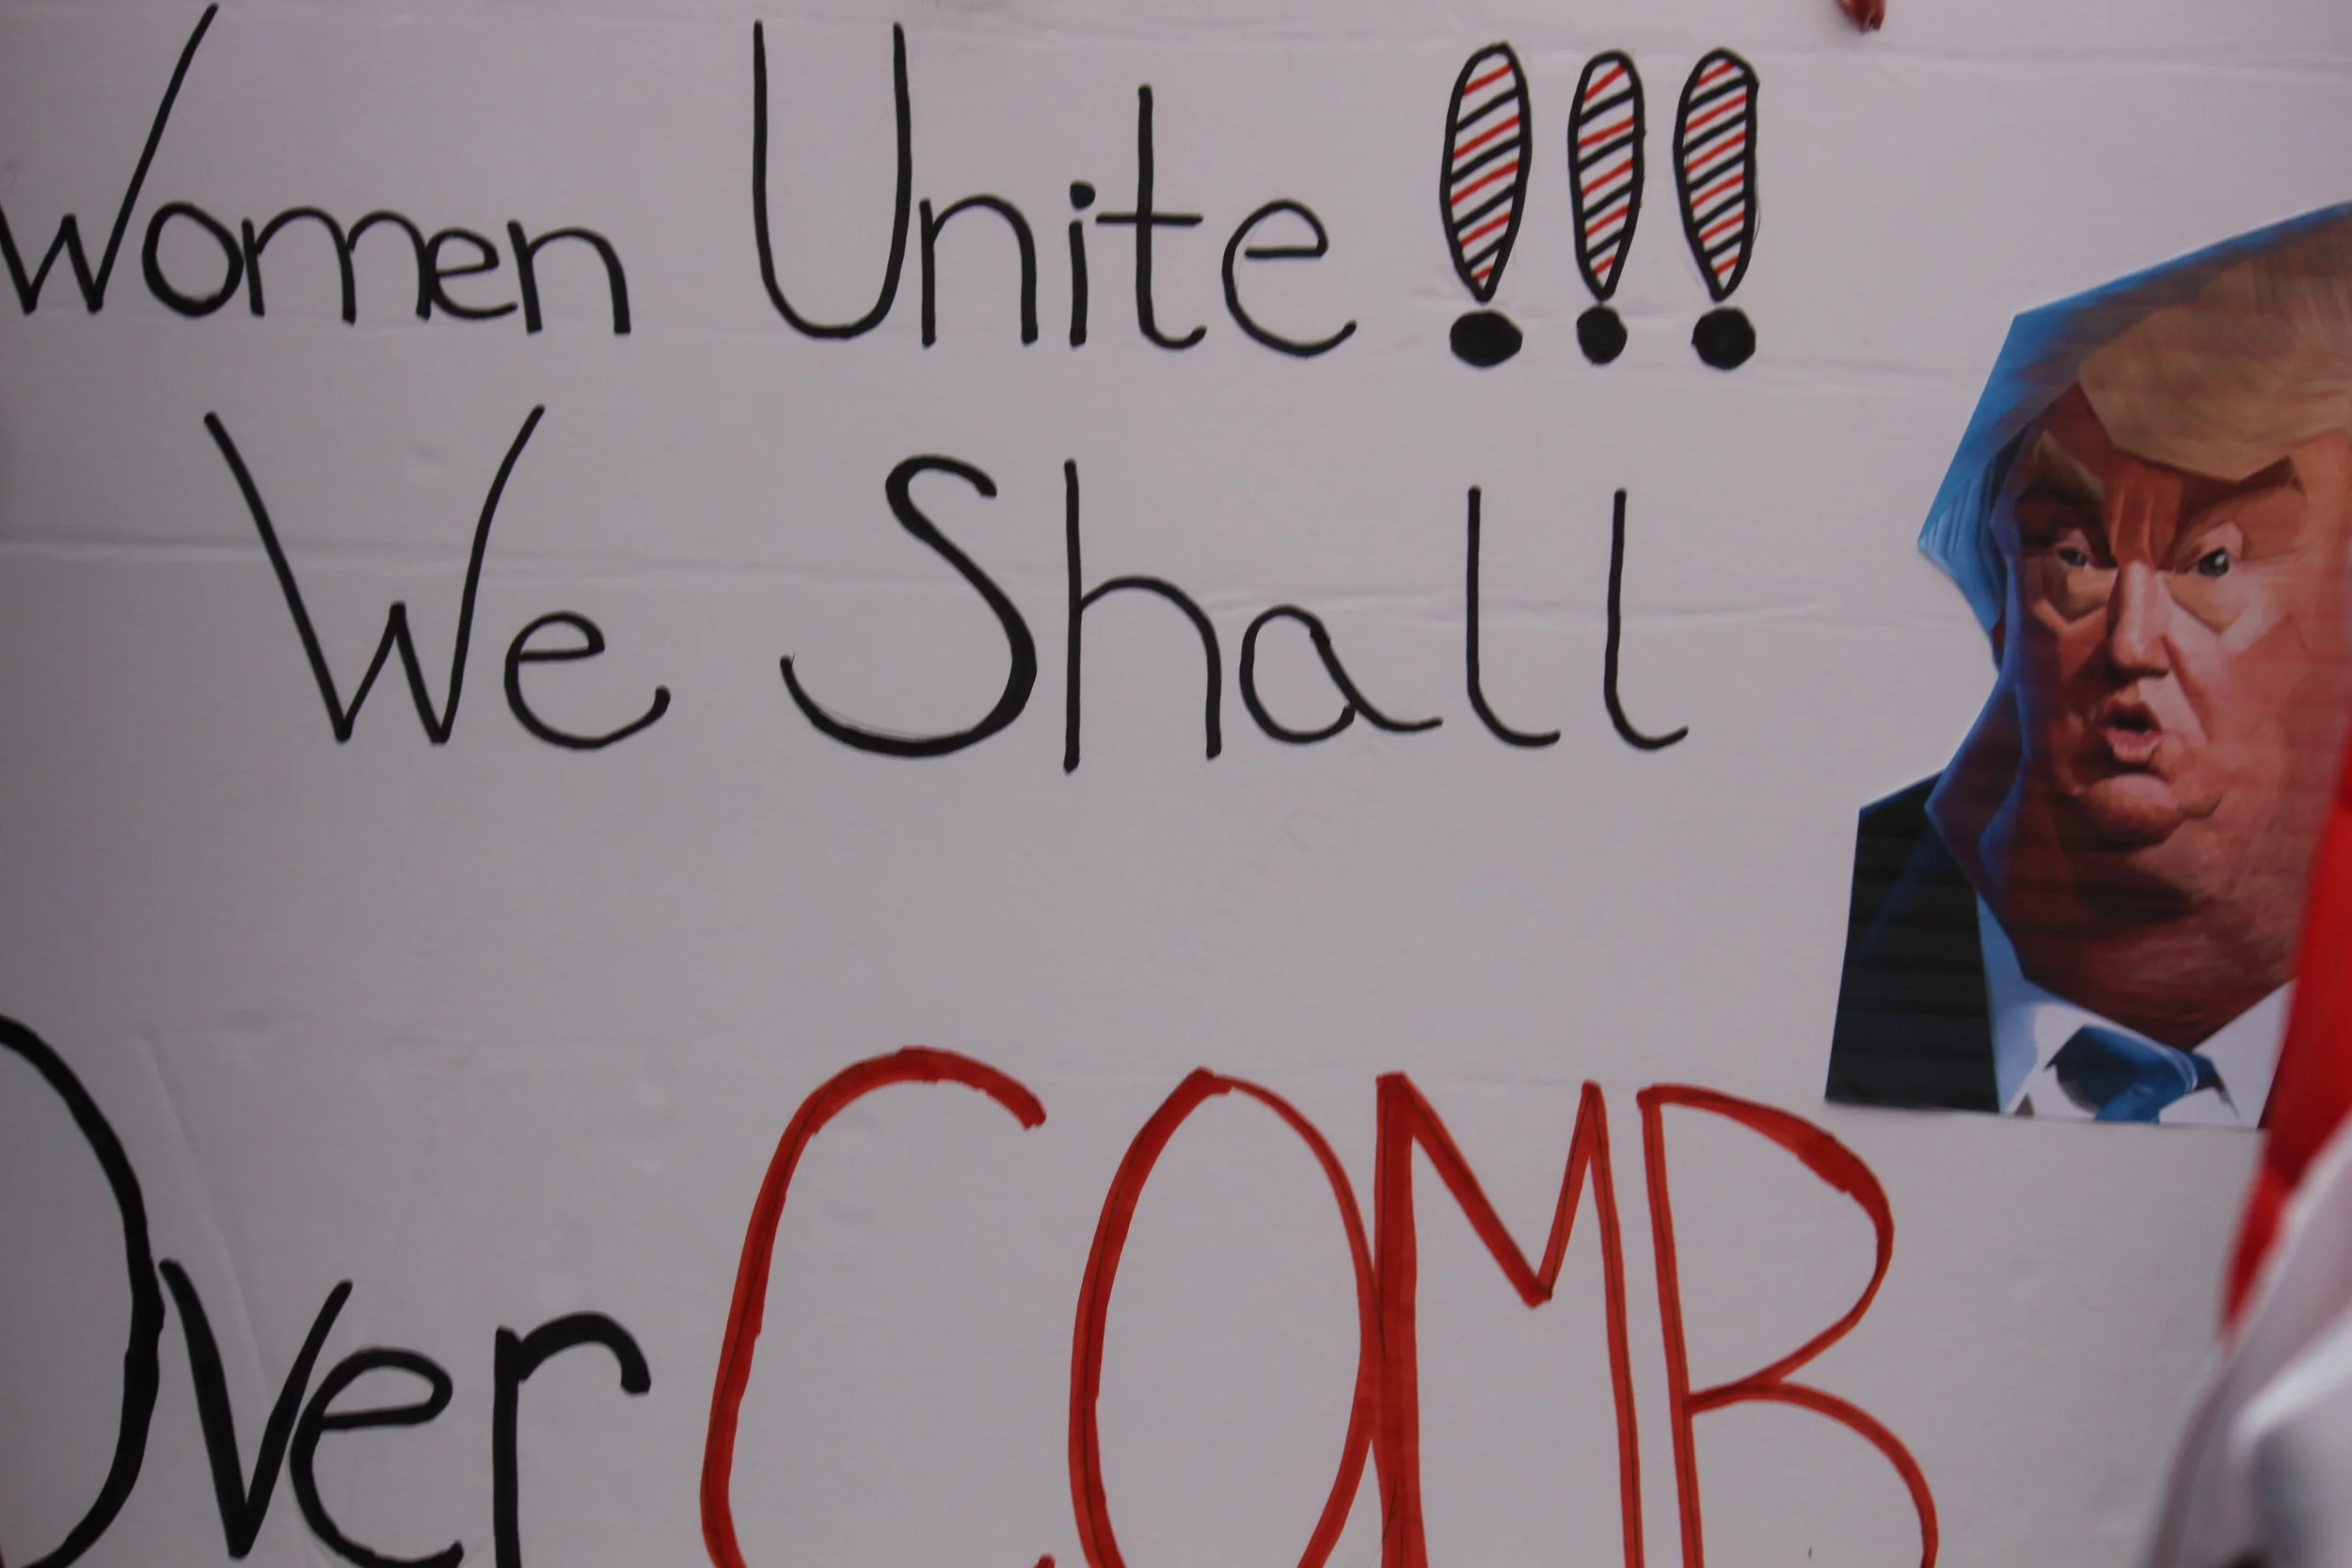 Women Unite!!!
We Shall
Over COMB